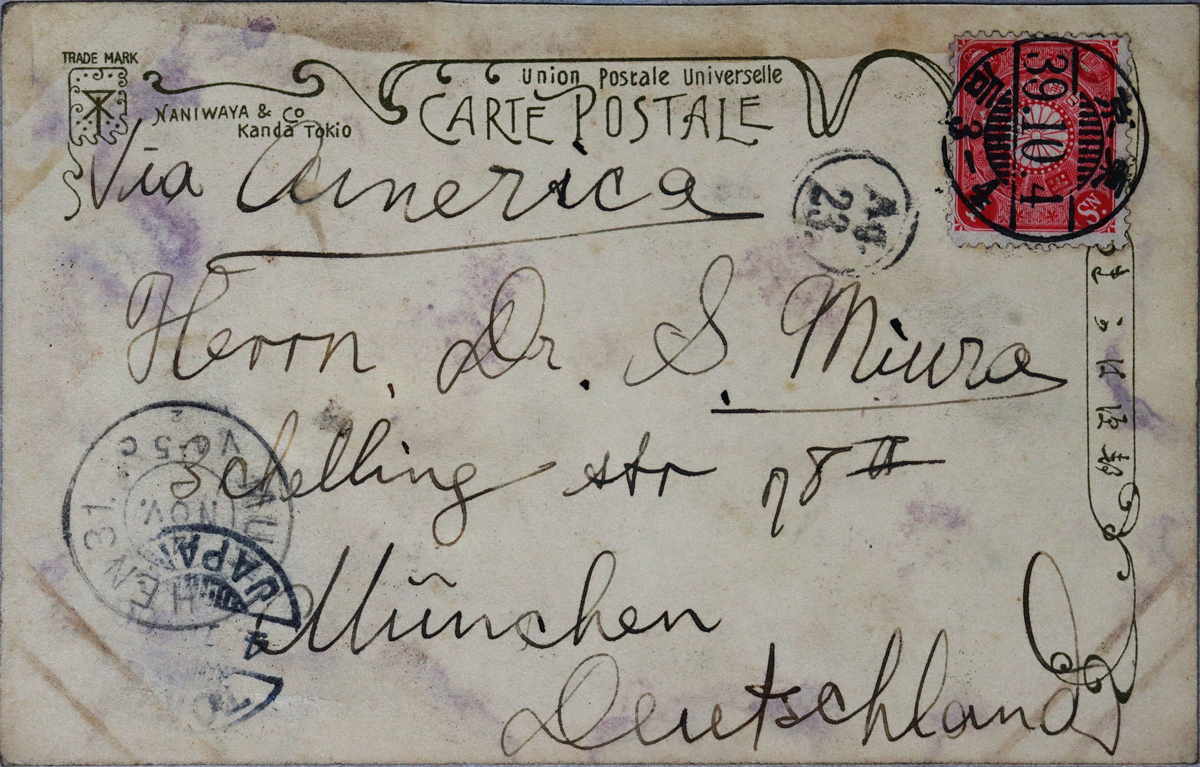 TRADE MARK
NANIWAYA & Co
Kanda Tokio
Union Postale Universelle
CARTE POSTALE
39.10.4
Ag.
23.
Via America
Herrn. Dr. S. Miura
Schelling str 78 II
München
Deutschland
MÜNCHEN 31.
NOV.
JAPAN